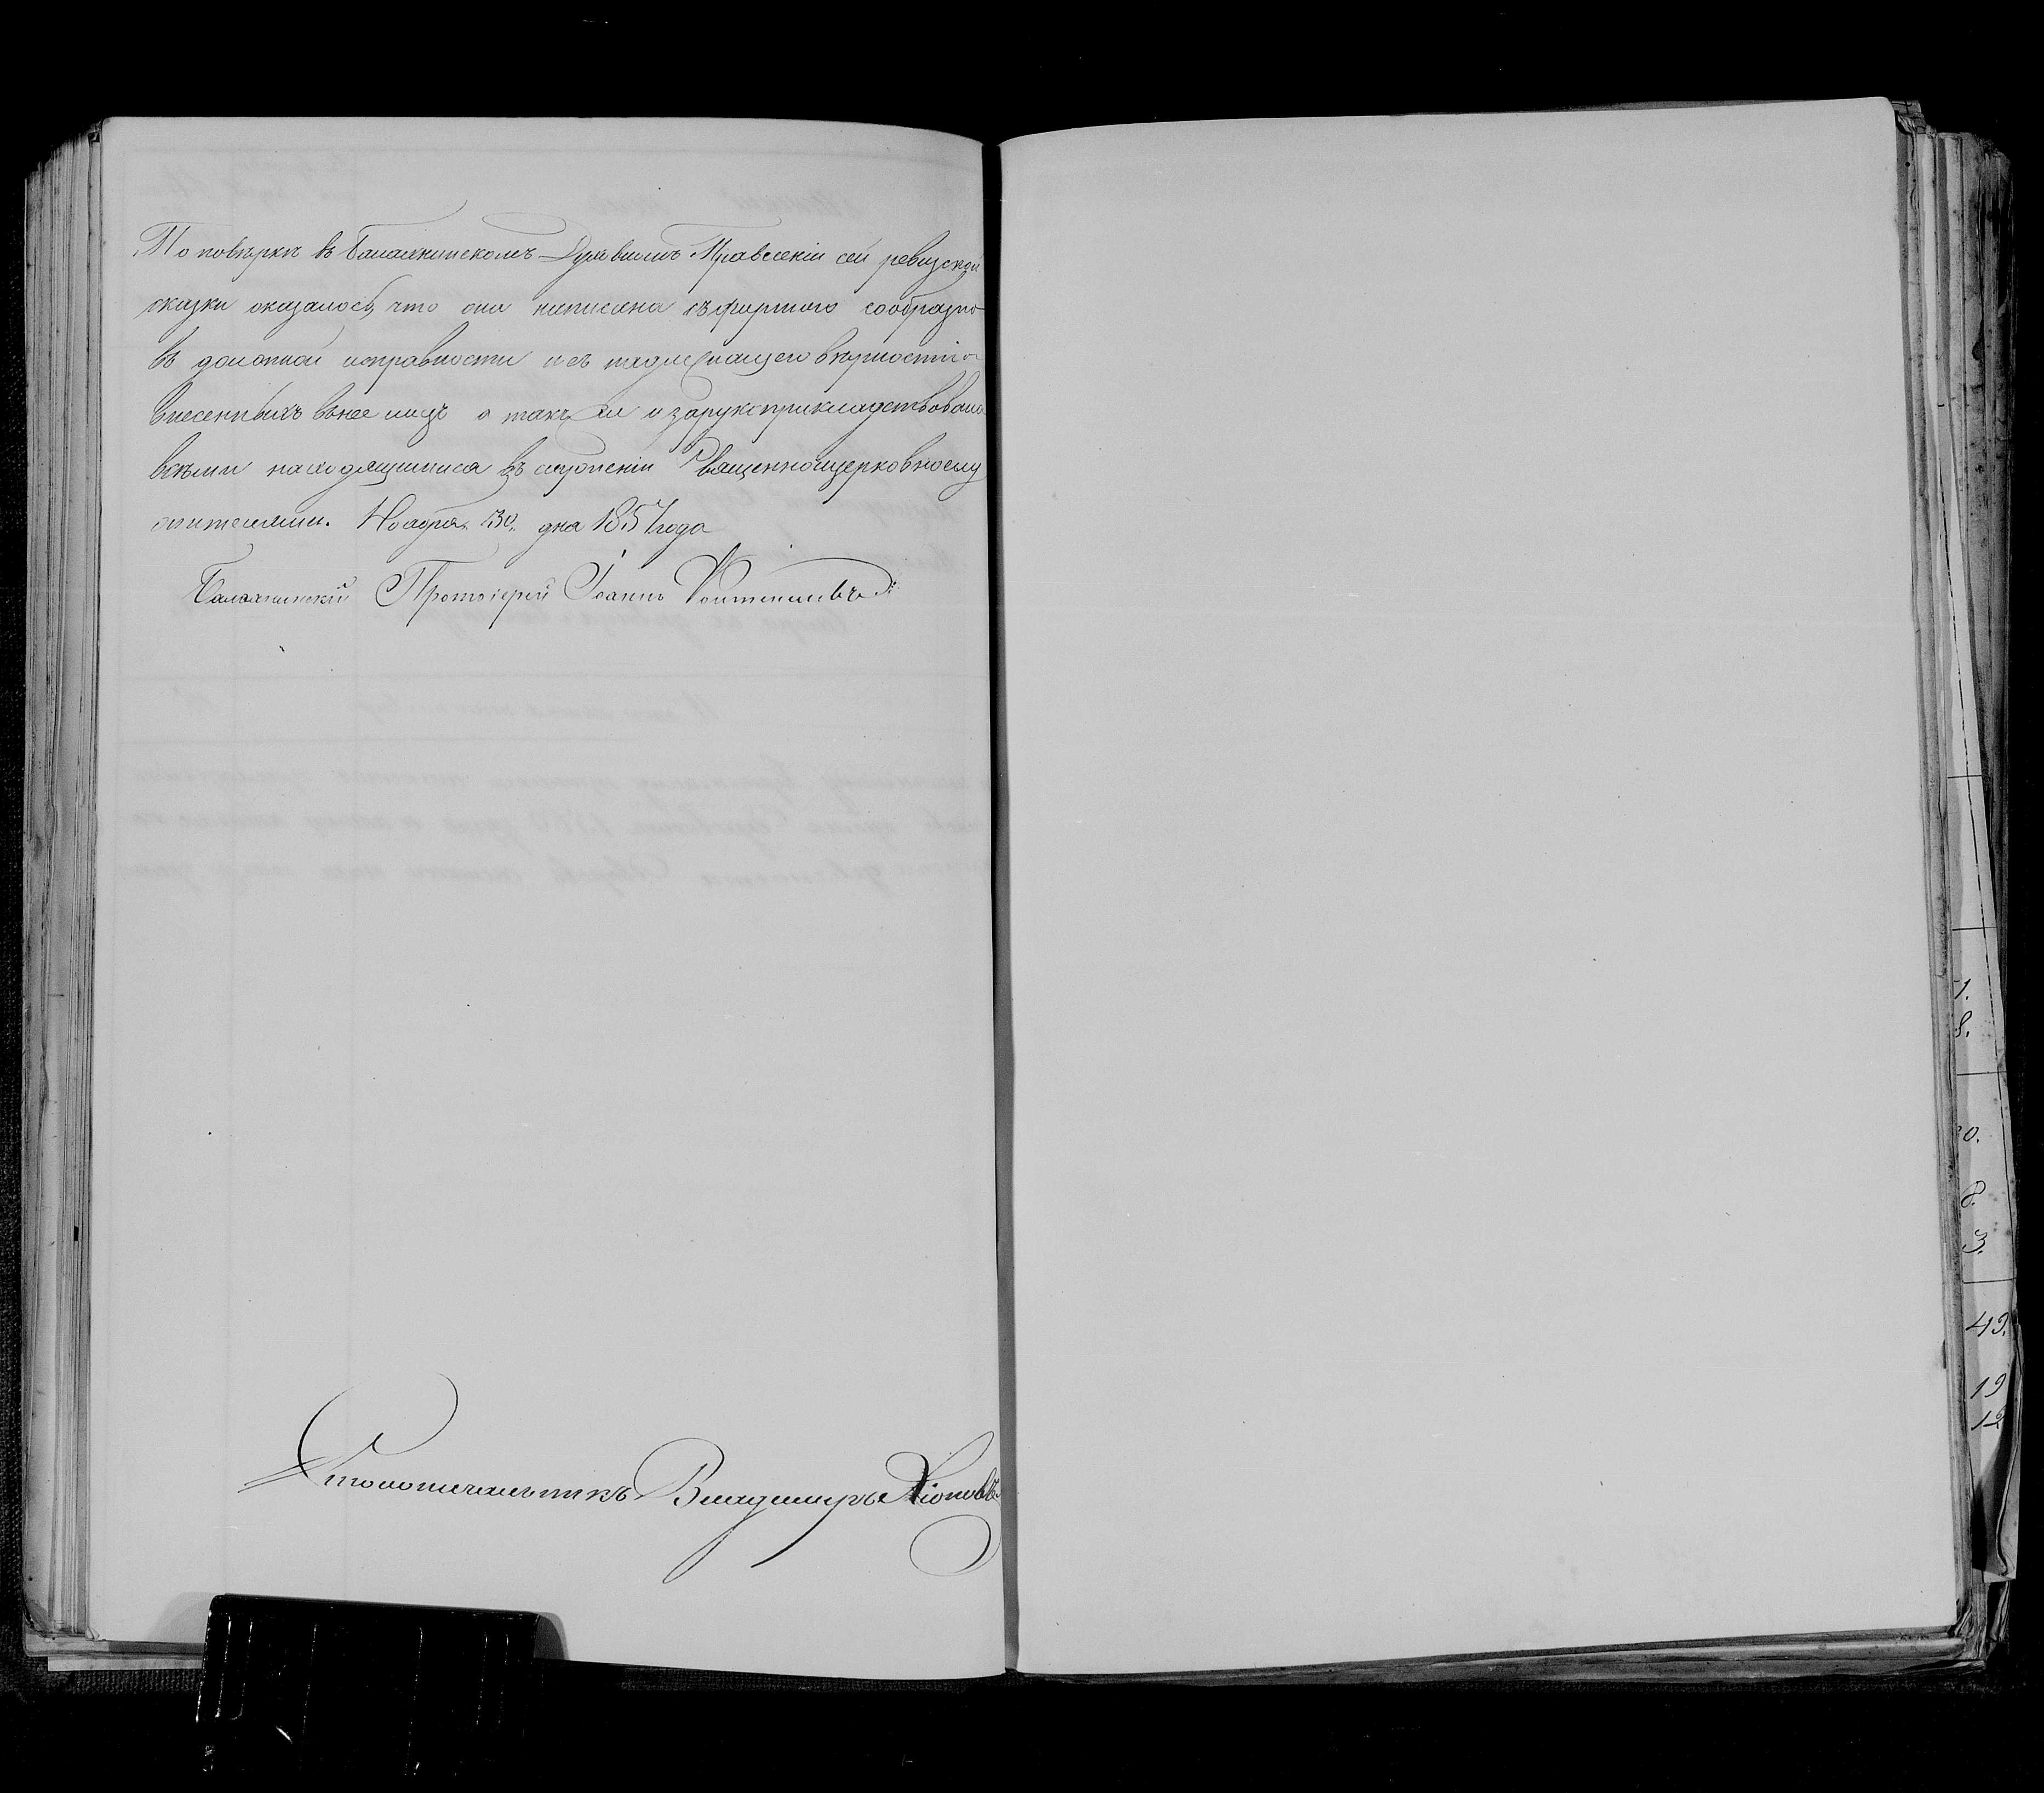 По повѣркѣ въ Балахнинскомъ Духовномъ Правленіи сей ревизской
сказки оказалось, что она написана съ формою сообразно
въ должной исправности и съ надлежащею вѣрностію
внесенныхъ въ нее лицъ а также и зарукоприкладствована
всѣми находящимися въ служеніи Священноцерковнослу
жителями. Ноября 30. дня 1857 года
Балахнинский Протоіерей Іоаннъ
Столоначальникъ Владимиръ
1.
8.
0.
8.
3.
49.
19
12